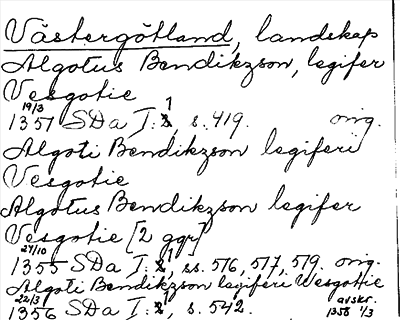 Västergötland, landskap
Algotus Bendikzson, legifer
Vesgotie
19/3
1357 SDa I:1, s. 419. orig.
Algoti Bendikzson legiferi
Vesgotie
Algotus Bendikzson legifer
Vesgotie [2 ggr]
27/10
1355 SDa I:1, ss. 516, 517, 519. orig.
Algoti Bendikzson legiferi Wesgottie
22/3 avskr.
1356 SDa I:1, s. 542. 1358 1/3